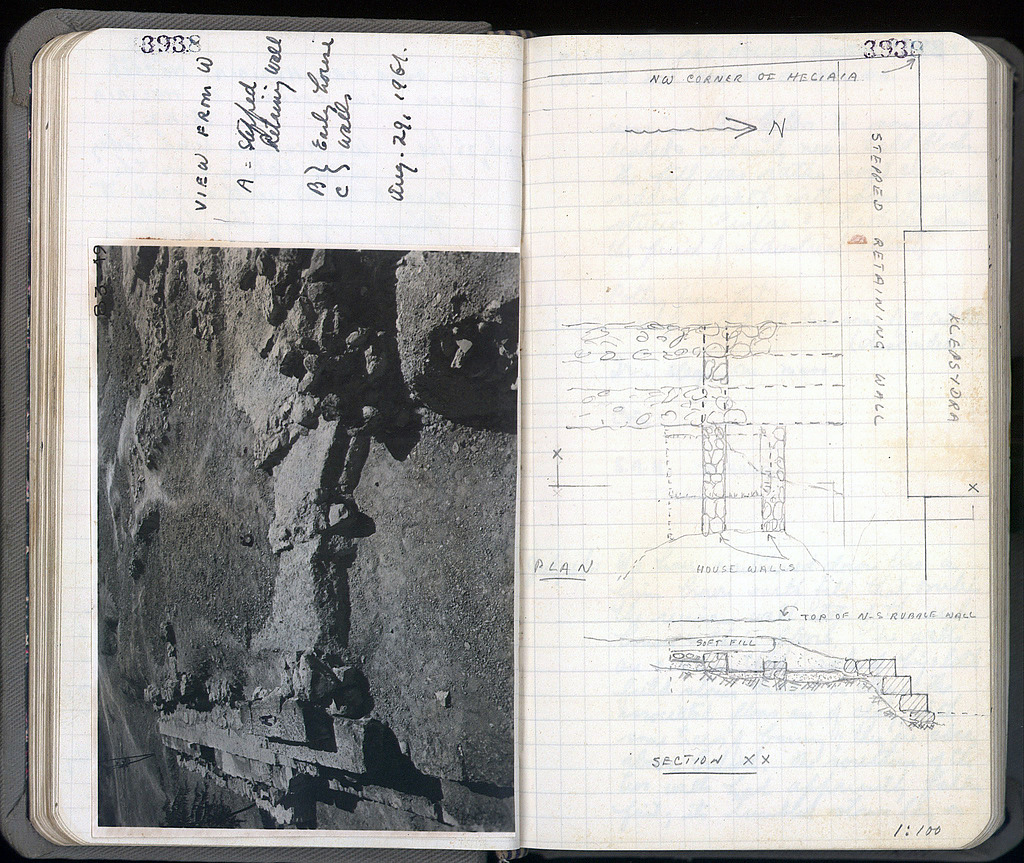 3938
VIEW FROM W
A = Stepped
Retaining Wall
B } Early house
C } walls
Aug. 29, 1961.
A
C
3938
NW CORNER OF HELIAIA
N
STEPPED RETAINING WALL
KLEPSYDRA
X
X
PLAN
HOUSE WALLS
TOP OF N-S RUBBLE WALL
SOFT FILL
SECTION XX
1:100